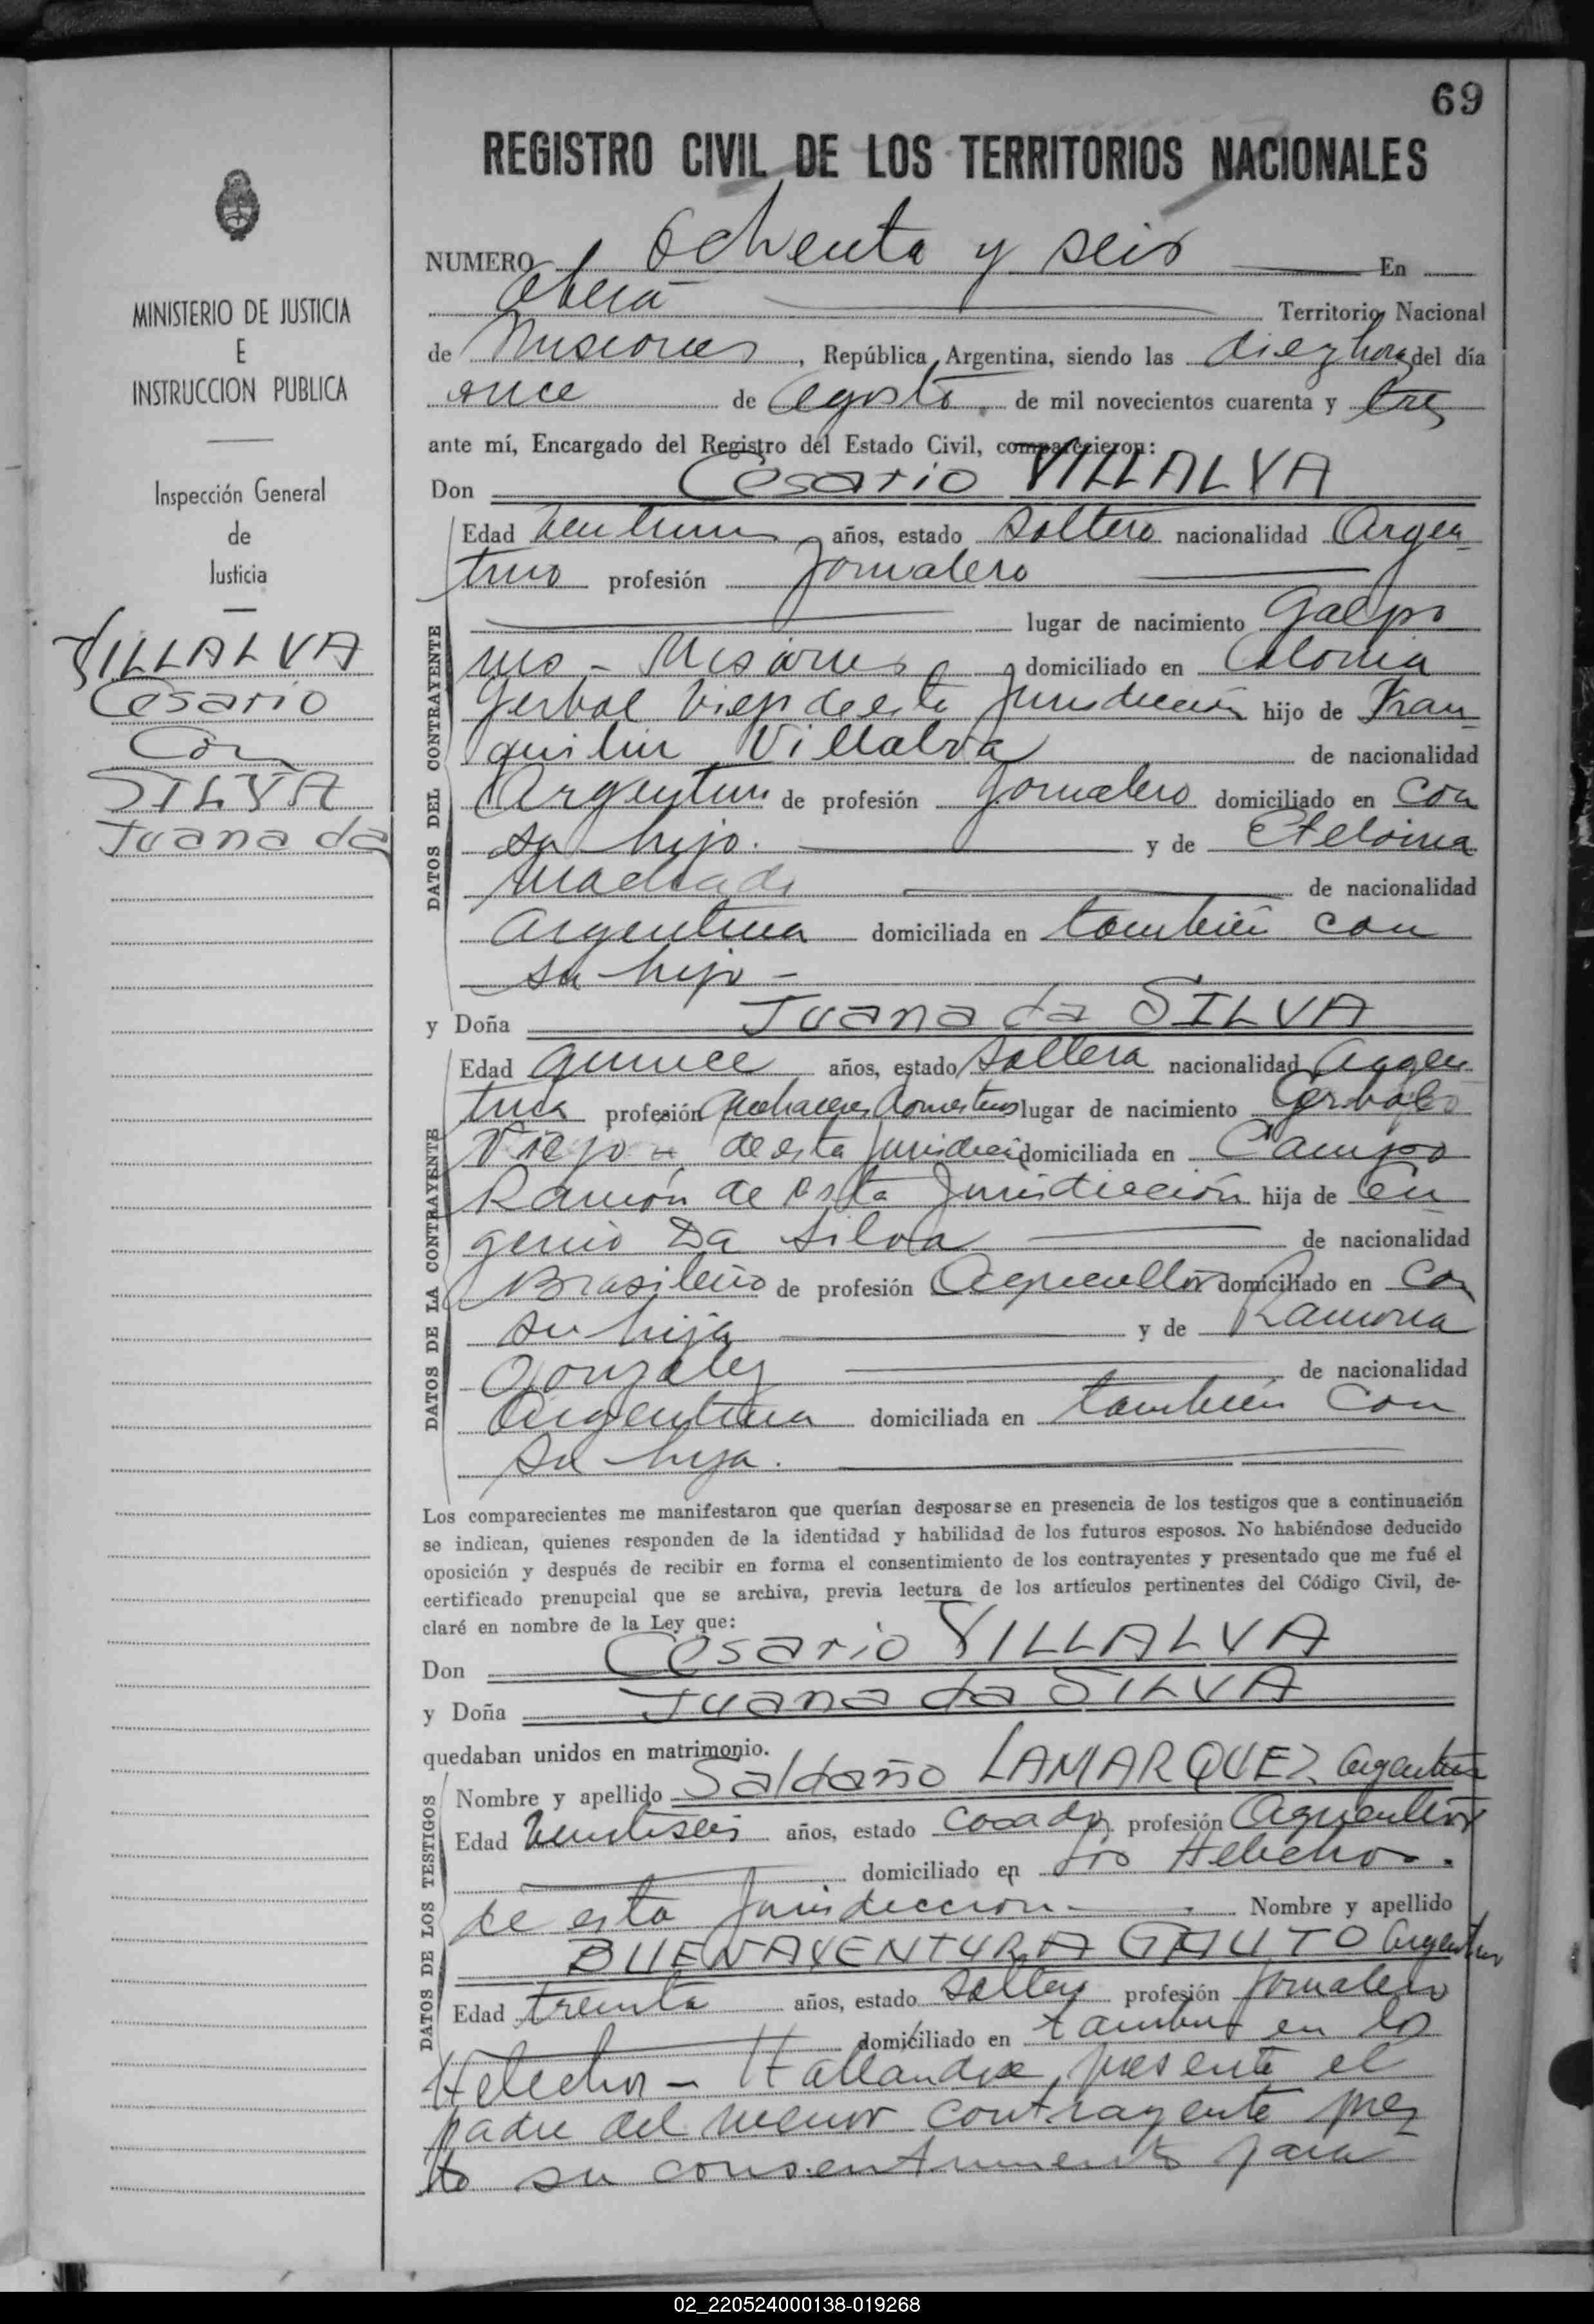 69
REGISTRO CIVIL DE LOS TERRITORIOS NACIONALES
MINISTERIO DE JUSTICIA
E
INSTRUCCION PUBLICA
Inspección General
de
Justicia
VILLALVA
Cesario
Con
SILVA
Juana da
NUMERO Ochenta y seis En
Oberá Territorio Nacional
de Misiones, República Argentina, siendo las diez horas del día
once de Agosto de mil novecientos cuarenta y tres
ante mí, Encargado del Registro del Estado Civil, comparecieron:
Don Cesario VILLALVA
DATOS DEL CONTRAYENTE
Edad años, estado Soltero nacionalidad Argen
tino profesión Jornalero
lugar de nacimiento Galpo
nes - Misiones domiciliado en Colonia
Yerbal Viejo de esta Jurisdiccion hijo de Tran
quilin Villalva de nacionalidad
Argentino de profesión Jornalero domiciliado en con
su hijo. y de Etelvina
Machado de nacionalidad
Argentina domiciliada en también con
su hijo -
y Doña Juana da SILVA
DATOS DE LA CONTRAYENTE
Edad quince años, estado Soltera nacionalidad Argen
tina profesión Quehaceres domesticos lugar de nacimiento Yerbal
Viejo - de esta domiciliada en Campo
Ramón de esta Jurisdicción hija de Eu
genio Da Silva de nacionalidad
Brasileño de profesión Agricultor domiciliado en con
su hija y de Ramona
González de nacionalidad
Argentina domiciliada en también con
su hija.
Los comparecientes me manifestaron que querían desposarse en presencia de los testigos que a continuación
se indican, quienes responden de la identidad y habilidad de los futuros esposos. No habiéndose deducido
oposición y después de recibir en forma el consentimiento de los contrayentes y presentado que me fué el
certificado prenupcial que se archiva, previa lectura de los artículos pertinentes del Código Civil, de-
claré en nombre de la Ley que:
Don Cesario VILLALVA
y Doña Juana da SILVA
quedaban unidos en matrimonio.
DATOS DE LOS TESTIGOS
Nombre y apellido Saldaño LAMARQUEZ Argentino
Edad veintiseis años, estado casado profesión Agricultor
domiciliado en Los Helechos.
de esta Jurisdiccion - Nombre y apellido
BUENAVENTURA GAUTO Argentino
Edad treinta años, estado Soltero profesión Jornalero
domiciliado en también en los
Helechos - Hallandose presente el
padre del menor contrayente pres
to su consentimiento para
02_220524000138-019268